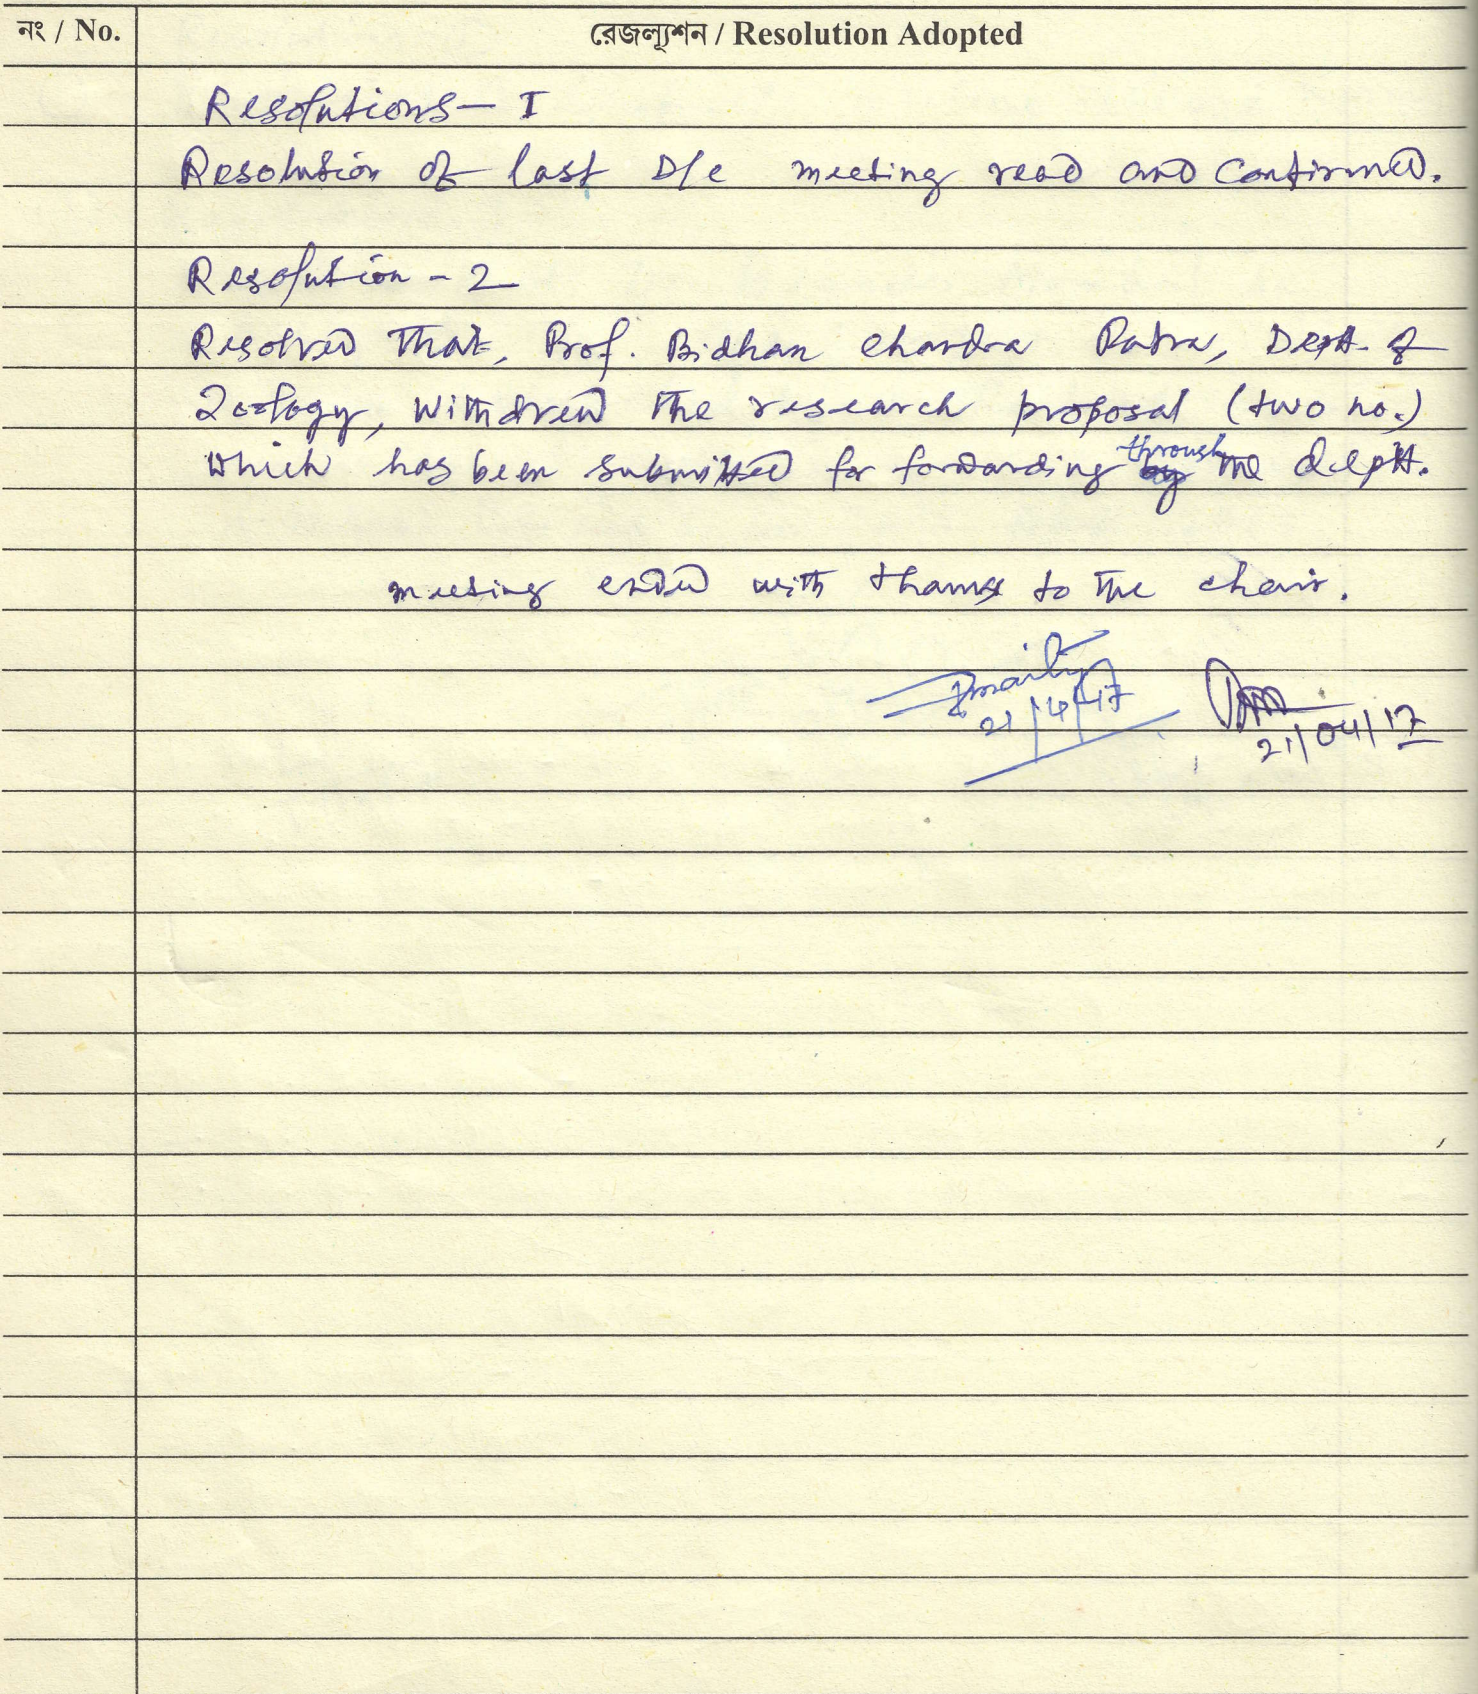 নং / No.
রেজল্যূশন / Resolution Adopted
Resolutions - I
Resolution of last D/c meeting read and Confirmed.
Resolution - 2
Resolved that, Prof. Bidhan Chandra Patra, Dept. of
Zoology, withdrew the research proposal (two no.)
which has been submitted for forwarding through the deptt.
meeting ended with thanks to the chair.
21/4/17
21/04/17